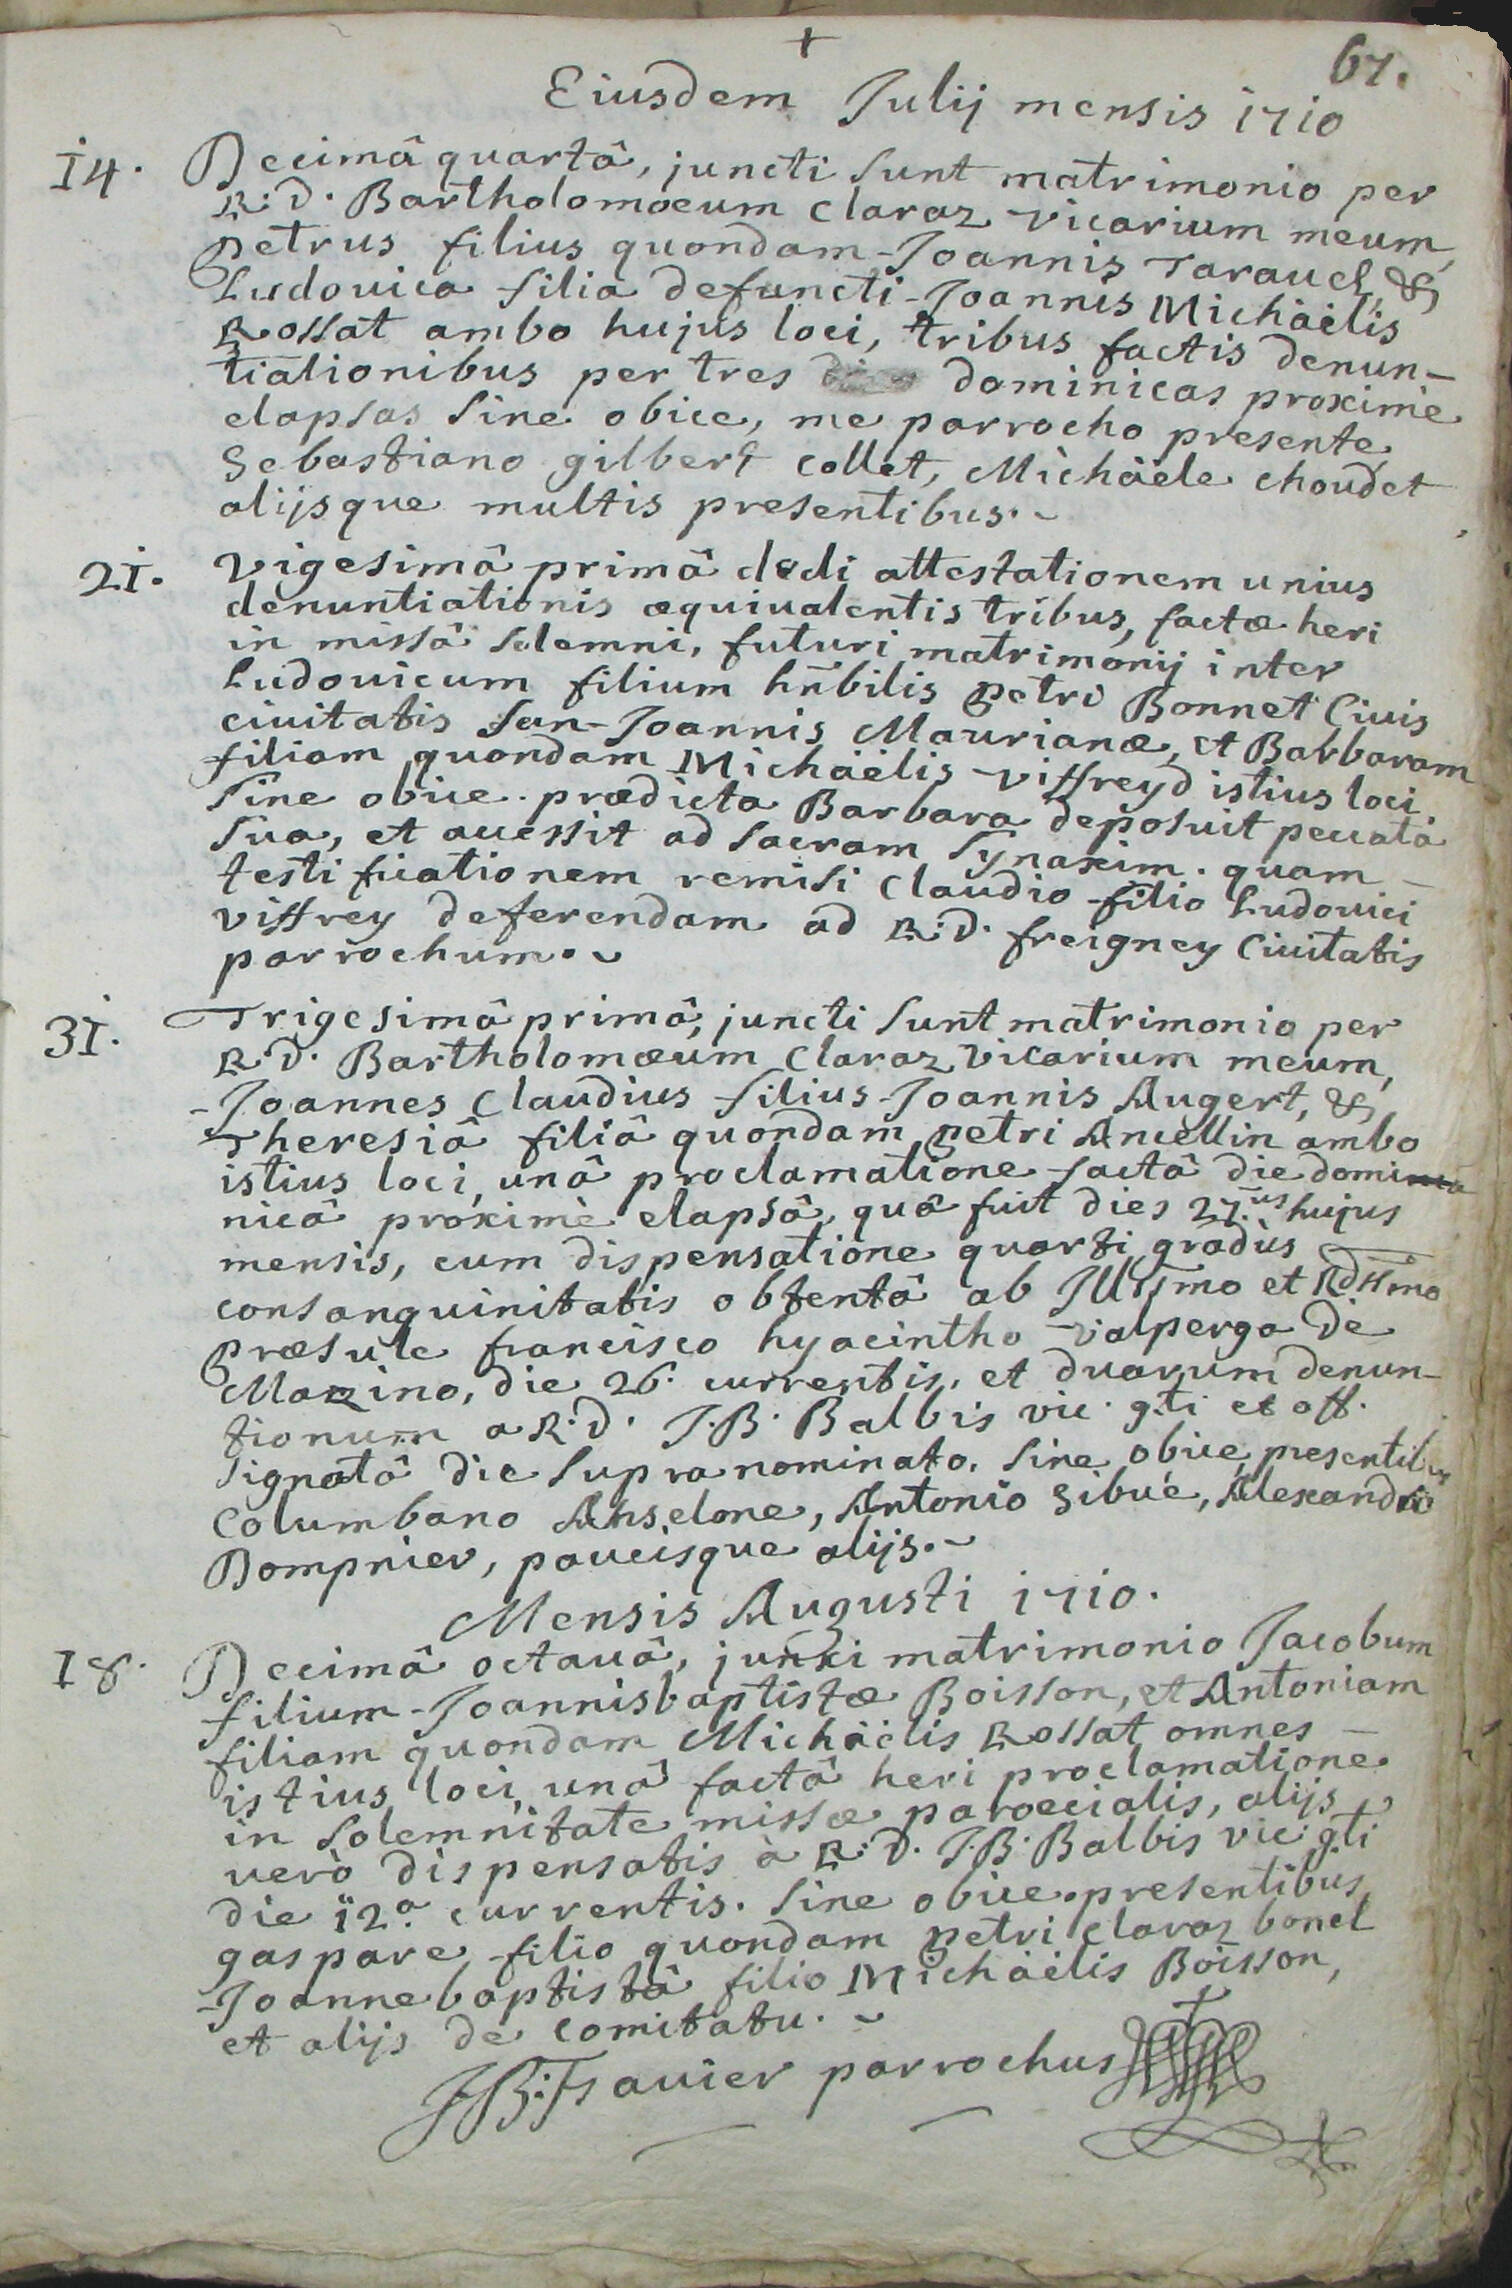 +
67.
Eiusdem Julij mensis 1710
14. Decimâ quartâ, juncti sunt matrimonio per
R:D. Bartholomoeum Claraz vicarium meum,
petrus filius quondam Joannis Tarauel, &
Ludouica filia defuncti Joannis Michäelis
Rossat ambo hujus loci, tribus factis denun-
tiationibus per tres dominicas proximè
elapsas sine obice, me parrocho presente
Sebastiano gilbert collet, Michäele choudet
alijsque multis presentibus.
21. Vigesimâ primâ dedi attestationem unius
denuntiationis æquiualentis tribus, factæ heri
in missâ solemni, futuri matrimonij inter
Ludouicum filium hn̄bilis petri Bonnet Ciuis
ciuitatis san-Joannis Maurianæ, et Barbaram
filiam quondam Michäelis viffreyd istius loci
sine obice. prædicta Barbara deposuit peccata
sua, et accessit ad sacram synaxim. quam
testificationem remisi Claudio filio Ludouici
viffrey deferendam ad R:D. freigney Ciuitatis
parrochum.
31. Trigesimâ primâ, juncti sunt matrimonio per
R:D. Bartholomæum Claraz vicarium meum,
Joannes Claudius filius Joannis Augert, &
Theresiâ filiâ quondam petri Ancellin ambo
istius loci, unâ proclamatione factâ die domi
nicâ proximè elapsâ, quâ fuit dies 27.us hujus
mensis, cum dispensatione quarti gradùs
consanguinitatis obtentâ ab Illssmo et Rdssmo
præsule francisco hyacintho valperga de
Mazino, die 26. currentis, et duarum denun-
tionum a R:D. J.B. Balbis vic. g.ti et off.
signatâ die supra nominato. sine obice, presentibus
Columbano Anselme, Antonio Sibué, Alexandro
Bompnier, paucisque alijs.
Mensis Augusti 1710.
18. Decimâ octauâ, junxi matrimonio Jacobum
filium Joannisbaptistæ Boisson, et Antoniam
filiam quondam Michäelis Rossat omnes
istius loci, unâ factâ heri proclamatione
in solemnitate missæ paroecialis, alijs
uerò dispensatis à R:D. J.B. Balbis vic. g.ti
die 12.a currentis. sine obice. presentibus
gaspare filio quondam petri Claraz bonel
Joannebaptistâ filio Michäelis Boisson,
et alijs de comitatu.
parrochus